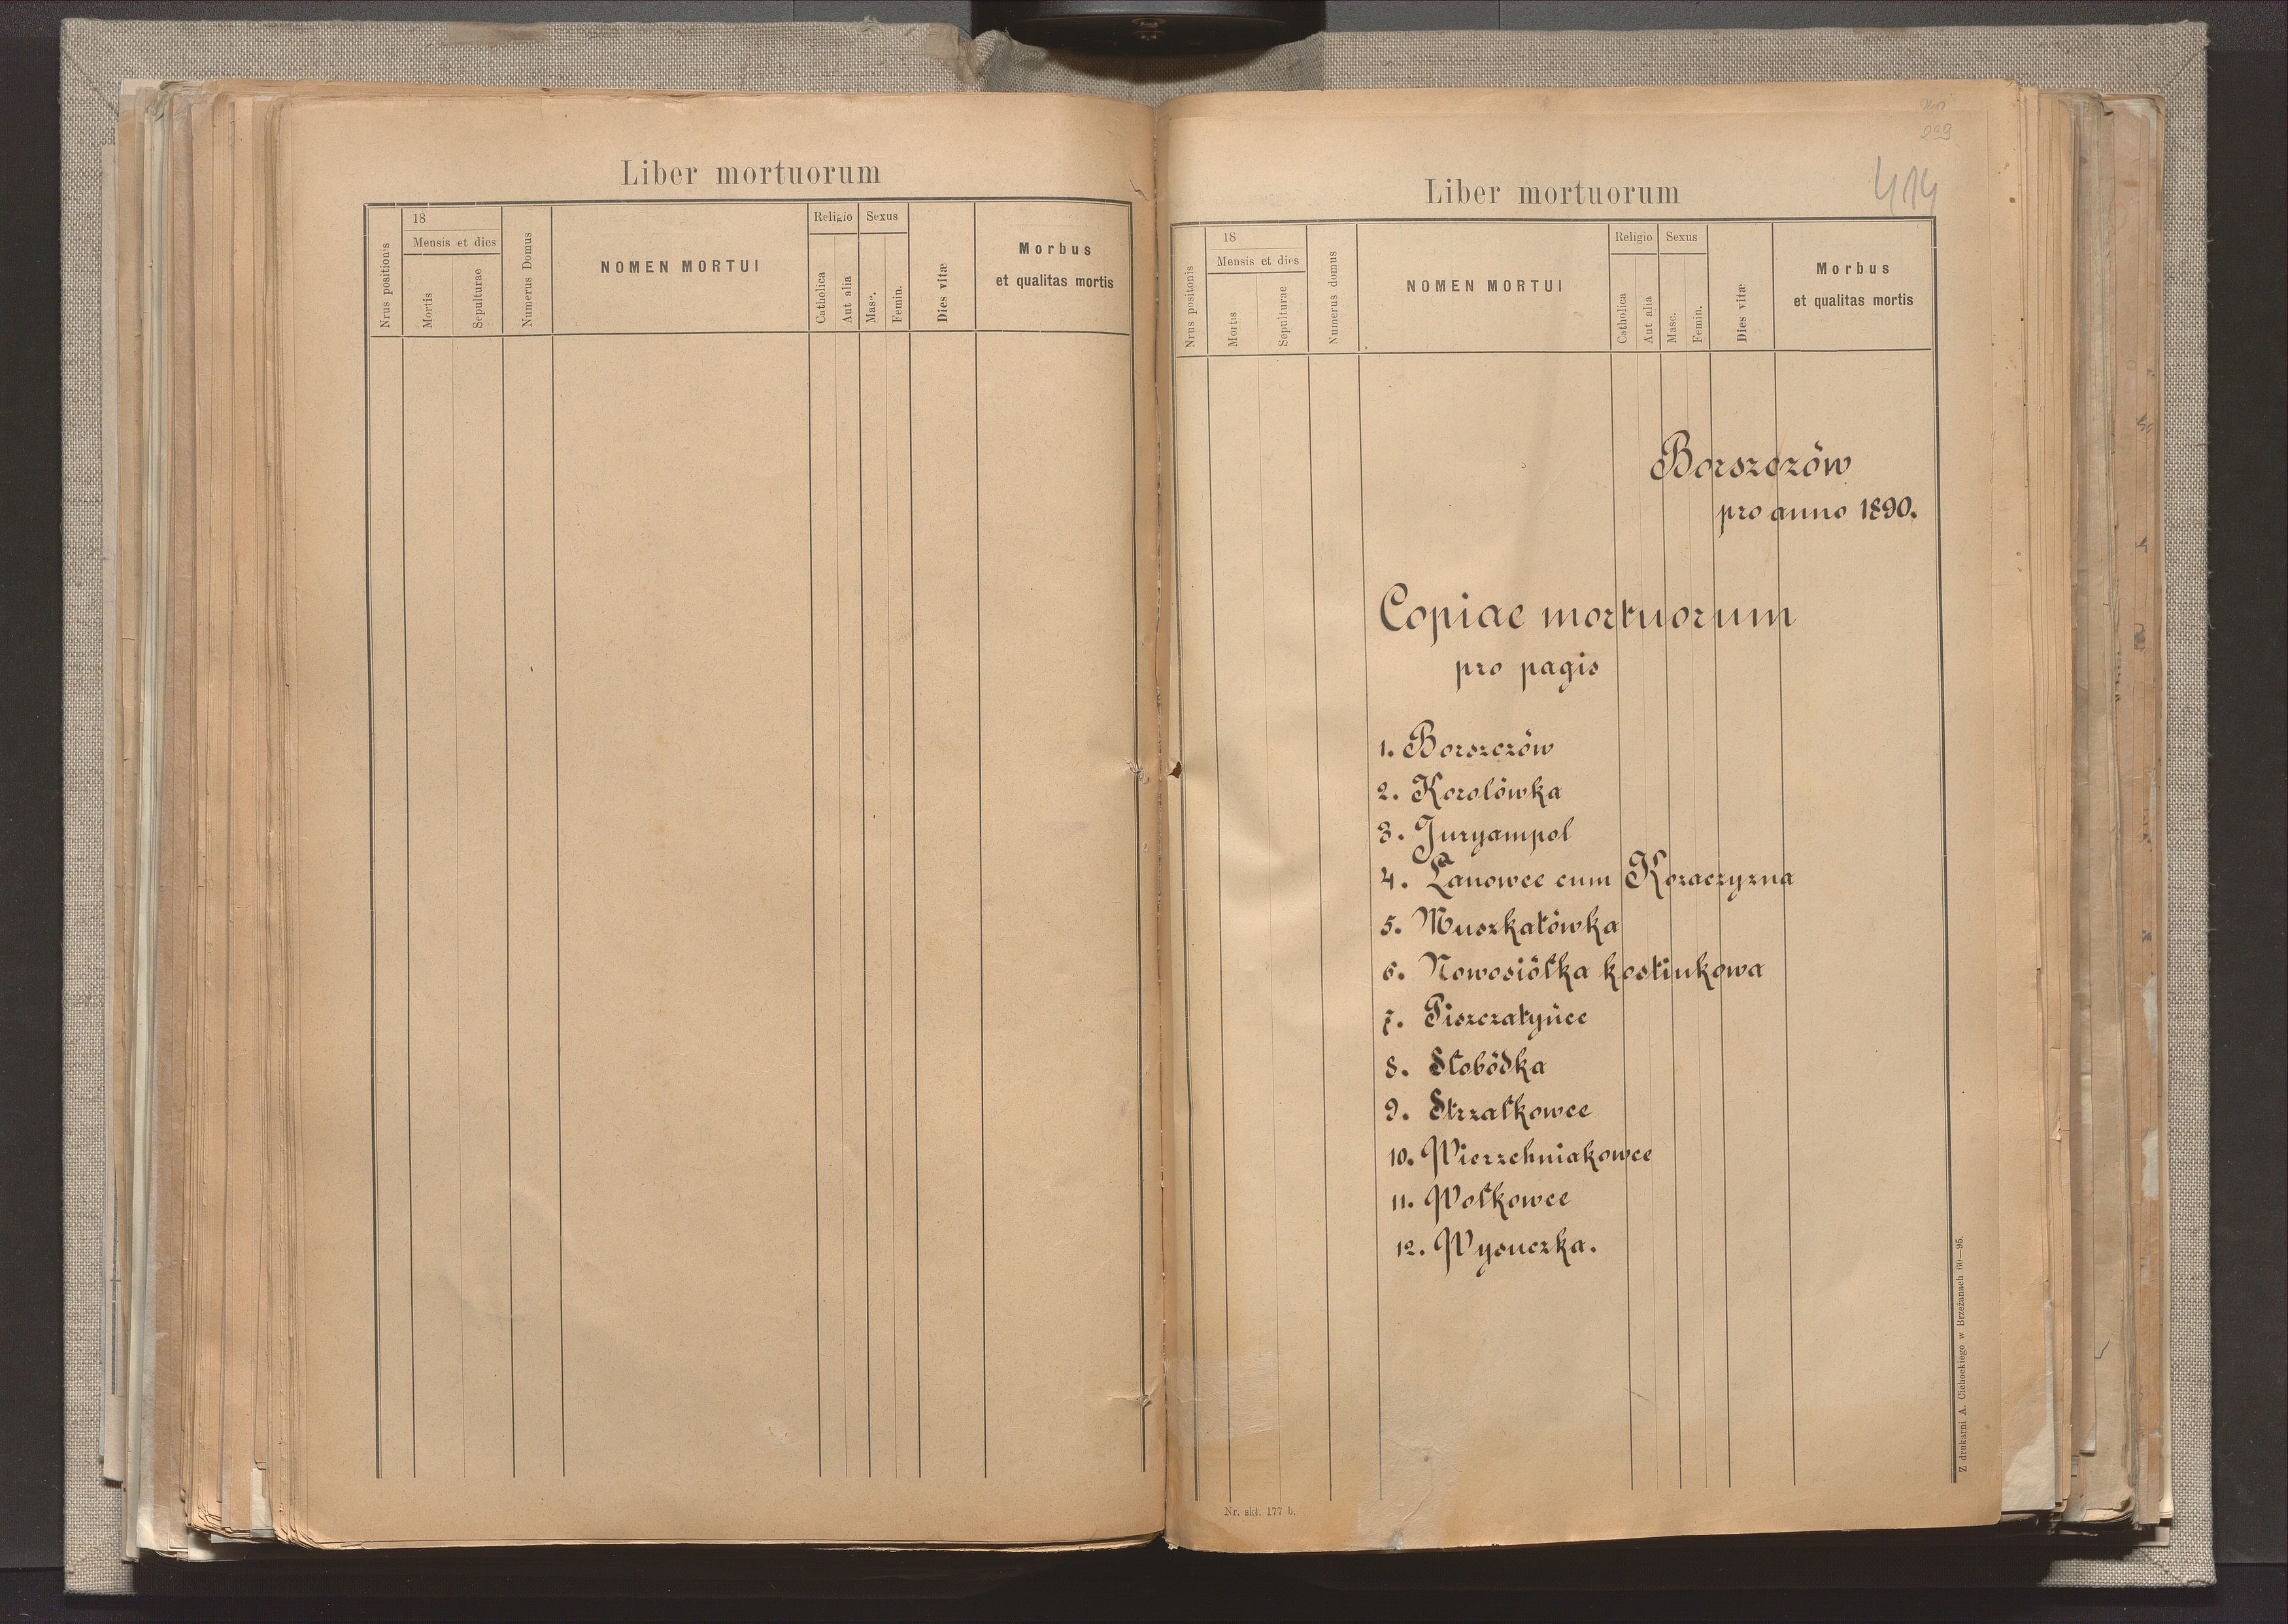 Liber mortuorum
Nrus positionis
18
Mensis et dies
Mortis
Sepulturae
Numerus Domus
NOMEN MORTUI
Religio
Catholica
Aut alia
Sexus
Masc.
Femin.
Dies vitæ
Morbus
et qualitas mortis
239
414
Liber mortuorum
Nrus positonis
18
Mensis et dies
Mortis
Sepulturae
Numerus domus
NOMEN MORTUI
Religio
Catholica
Aut alia
Sexus
Masc.
Femin.
Dies vitæ
Morbus
et qualitas mortis
Borszczów
pro anno 1890.
Copiae mortuorum
pro pagis
1. Borszczów
2. Korolówka
3. Juryampol
4. Łanowce cum Kozaczyzna
5. Muszkatówka
6. Nowosiółka kostiukowa
7. Piszczatyńce
8. Słobódka
9. Strzałkowce
10. Wierzchniakowce
11. Wołkowce
12. Wysuczka.
Z drukarni A. Cichockiego w Brzeżanach 60—95.
Nr. skł. 177 b.